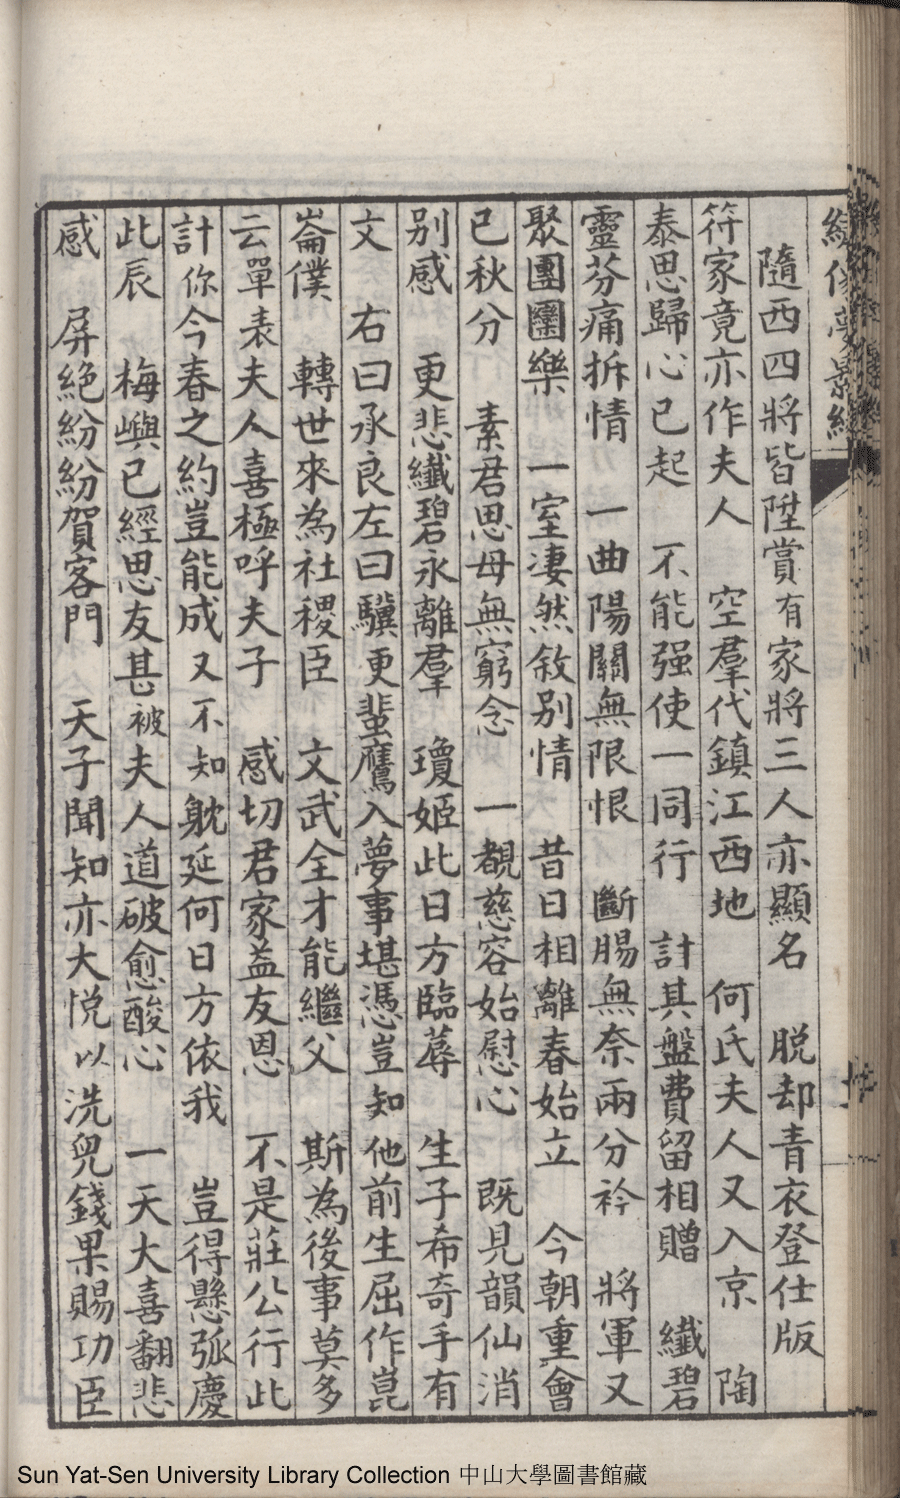 繡像夢影緣
隨西四將皆陞賞有家將三人亦顯名　脱却青衣登仕版
符家竟亦作夫人　空羣代鎮江西地　何氏夫人又入京　陶
泰思歸心已起　不能强使一同行　計其盤費留相贈　纎碧
靈芬痛拆情　一曲陽關無限恨　斷腸無奈兩分衿　將軍又
聚團圞樂　一室淒然敘别情　昔日相離春始立　今朝重會
已秋分　素君思母無窮念　一覩慈容始慰心　既見韻仙消
别感　更悲纎碧永離羣　瓊姬此日方臨蓐　生子希奇手有
文　右曰承良左曰驥更蜚鷹入夢事堪憑豈知他前生屈作崑
崙僕　轉世來為社稷臣　文武全才能繼父　斯為後事莫多
云單表夫人喜極呼夫子　感切君家益友恩　不是莊公行此
計你今春之約豈能成又不知躭延何日方依我　豈得懸弧慶
此辰　梅嶼已經思友甚被夫人道破愈酸心　一天大喜翻悲
感　屏絶紛紛賀客門　天子聞知亦大悦以洗兒錢果賜功臣
Sun Yat-Sen University Library Collection 中山大學圖書館藏